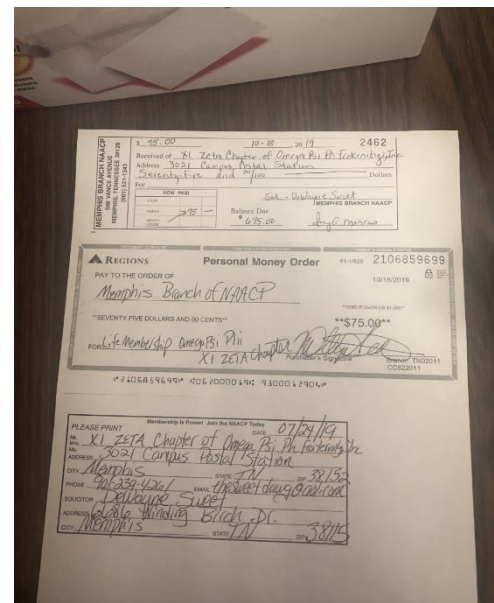 MEMPHIS BRANCH NAACP
588 VANCE AVENUE
MEMPHIS, TENNESSEE 38126
(901) 521-1343
$ 75.00 10-18 2019 2462
Received of XI Zeta Chapter of Omega Psi Phi Fraternity, Inc
Address 3021 Campus Postal Station
Seventy-five and no/100 Dollars
For
HOW PAID
CASH
CHECK 75 —
MONEY ORDER
Sol - DeWayne Sweet
MEMPHIS BRANCH NAACP
Balance Due
$675.00
REGIONS Personal Money Order 2106859699
PAY TO THE ORDER OF 10/18/2019
Memphis Branch of NAACP
**SEVENTY FIVE DOLLARS AND 00 CENTS** **$75.00**
FOR Life Membership Omega Psi Phi
XI ZETA Chapter
Purchaser's Signature
Branch: TN02011
CC622011
Membership is Power! Join the NAACP Today
PLEASE PRINT DATE 07/24/19
Mr.
Mrs.
Ms. XI ZETA Chapter of Omega Psi Ph Fraternity, Inc
ADDRESS 3021 Campus Postal Station
CITY Memphis STATE TN ZIP 38152
PHONE EMAIL
SOLICITOR DeWayne Sweet
ADDRESS Winding Birch Dr.
CITY Memphis STATE TN ZIP 38115